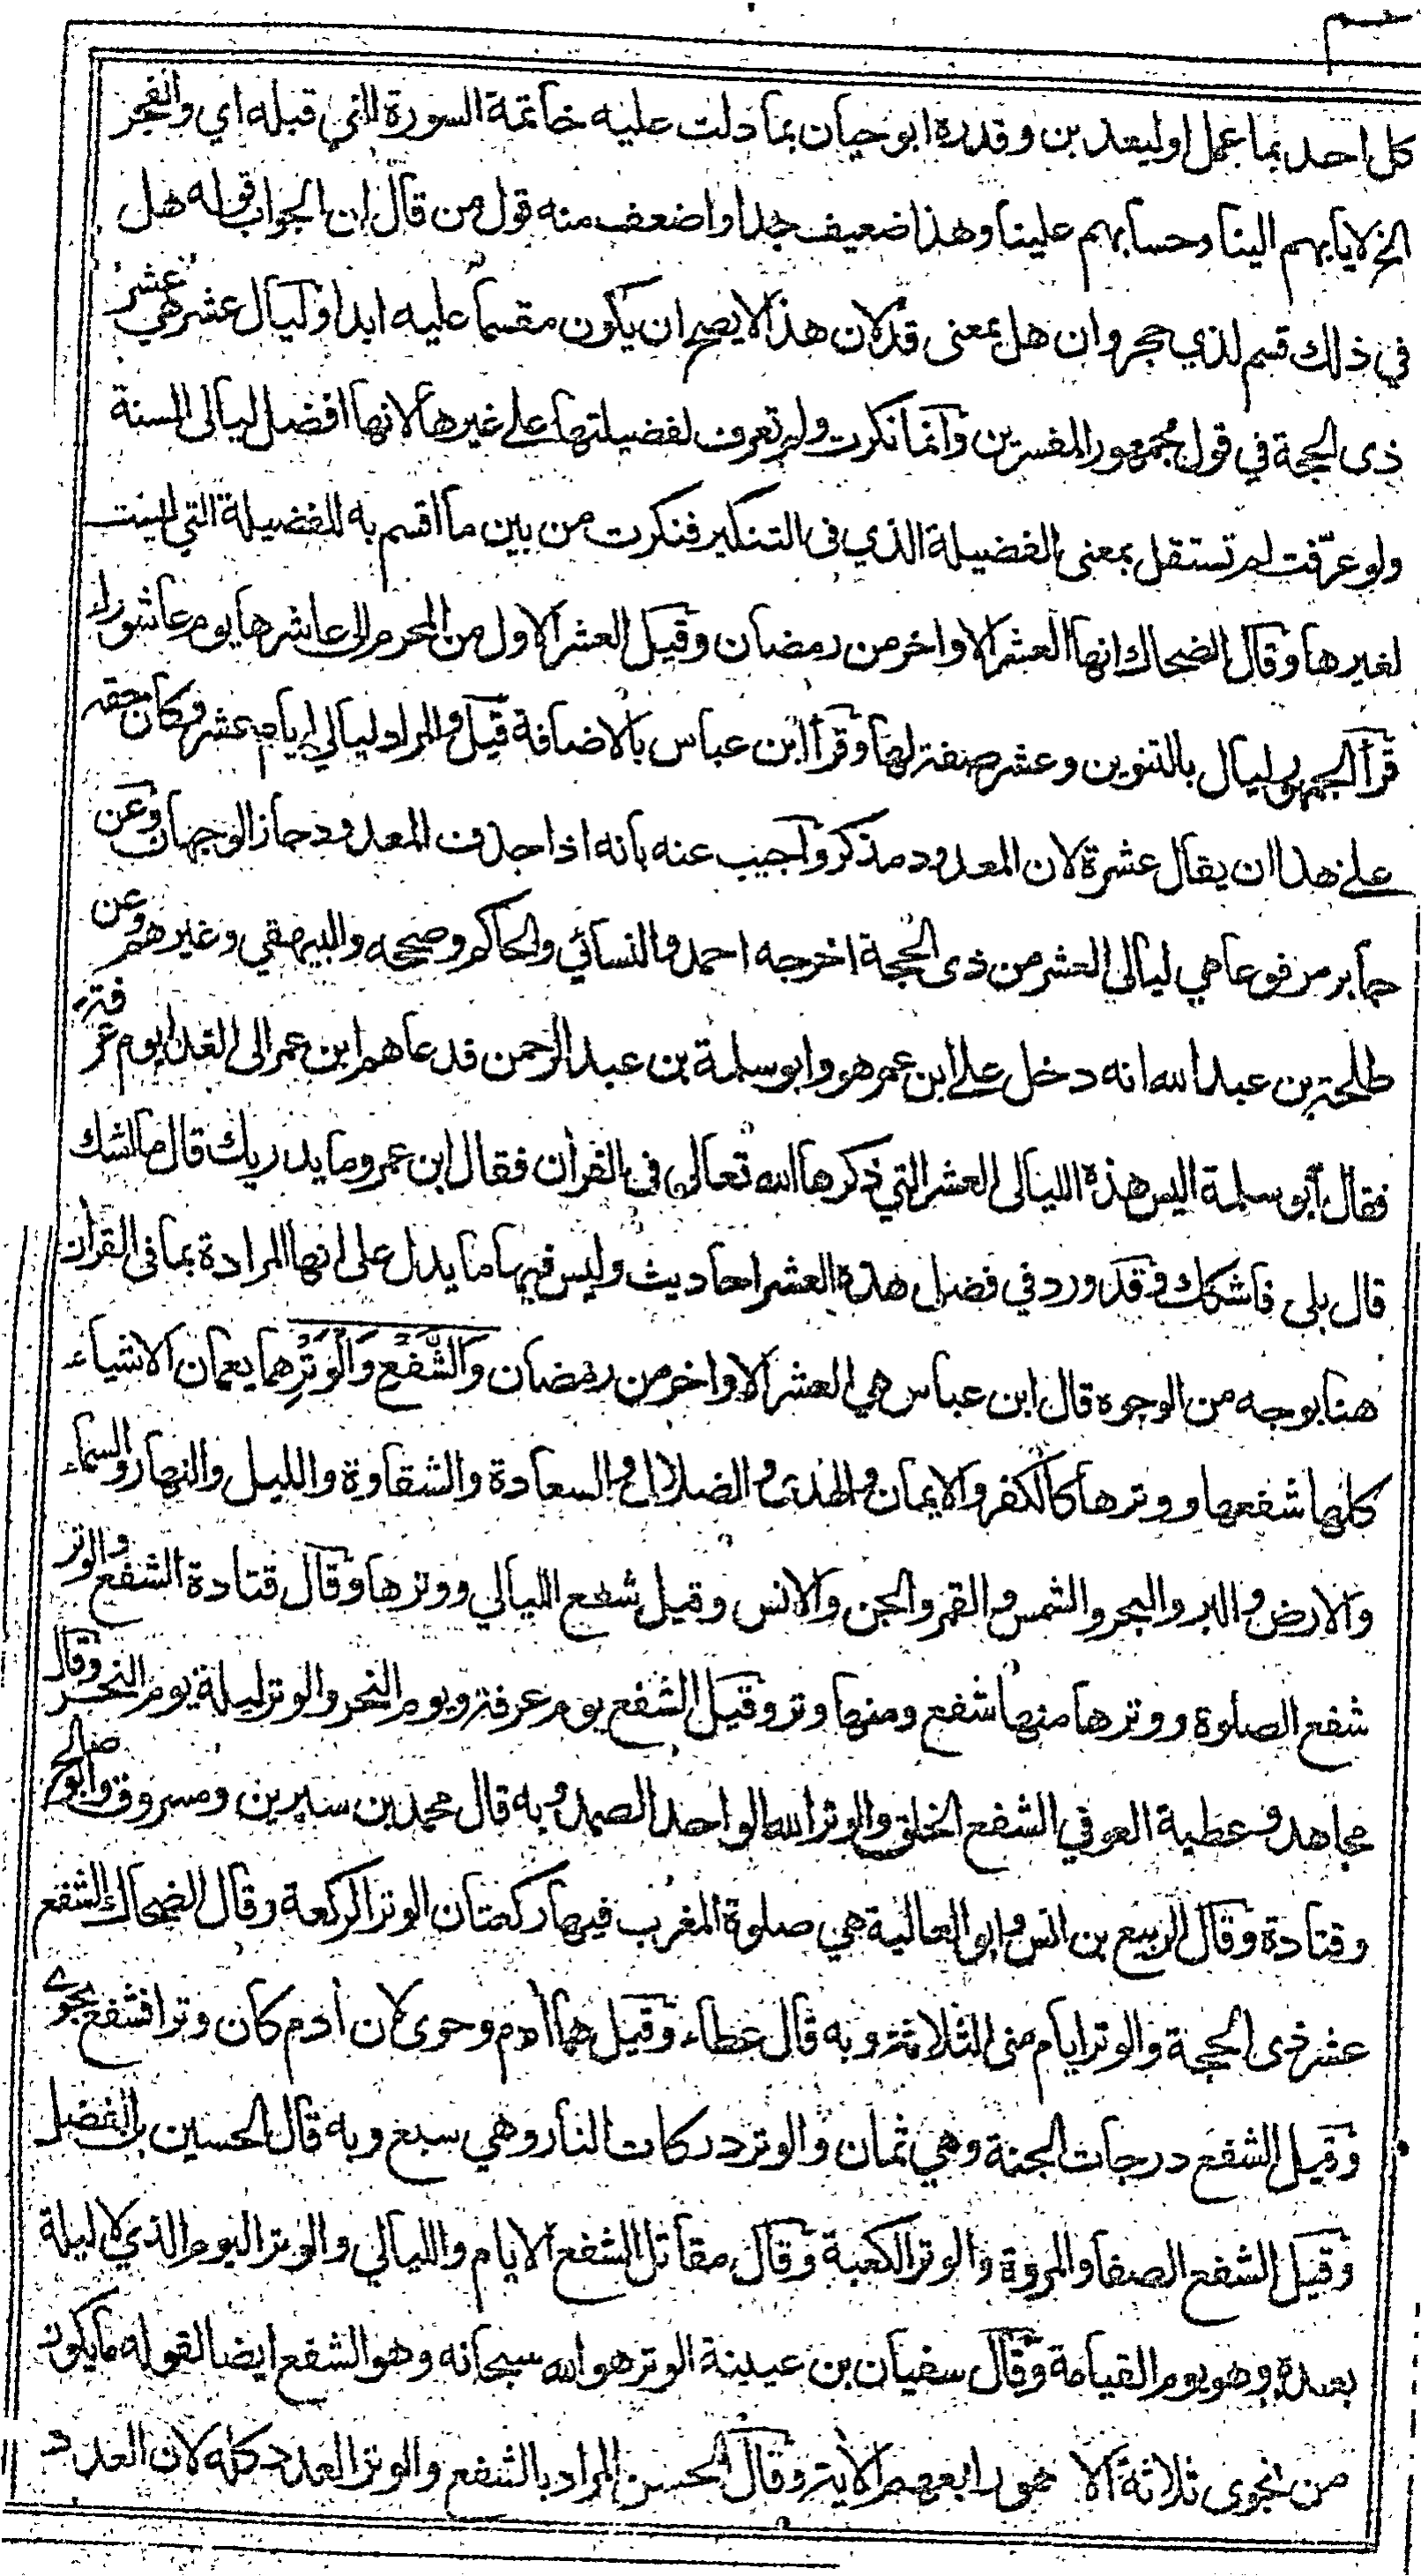 كل احد بما عمل او ليعذبن وقدره ابو حيان بما دلت عليه خاتمة السورة التي قبله اي والفجر
الخ لايابهم الينا وحسابهم علينا وهذا ضعيف جدا واضعف منه قول من قال ان الجواب قوله هل
في ذلك قسم لذي حجر وان هل بمعنى قد لان هذا لا يصح ان يكون مقسما عليه ابدا وليال عشر هي عشر
ذى الحجة في قول جمهور المفسرين وانما نكرت ولم تعرف لفضيلتها على غيرها لانها افضل ليالى السنة
ولو عرّفت لم تستقل بمعنى الفضيلة الذي فى التنكير فنكرت من بين ما اقسم به للفضيلة التي ليست
لغيرها وقال الضحاك انها العشر الاواخر من رمضان وقيل العشر الاول من المحرم الى عاشرها يوم عاشوراء
قرأ الجمهور ليال بالتنوين وعشر صفة لها وقرأ ابن عباس بالاضافة قيل والمراد ليالي ايام عشر وكان حقه
على هذا ان يقال عشرة لان المعدود مذكر واجيب عنه بانه اذا حذف المعدود جاز الوجهان وعن
جابر مرفوعا هي ليالي العشر من ذى الحجة اخرجه احمد والنسائي والحاكم وصححه والبيهقي وغيرهم وعن
طلحة بن عبد الله انه دخل على ابن عمر هو وابو سلمة بن عبد الرحمن فدعاهم ابن عمر الى الغداء يوم عرفة
فقال ابو سلمة اليس هذه الليالى العشر التي ذكرها الله تعالى فى القرأن فقال ابن عمر وما يدريك قال ما اشك
قال بلى فاشكك وقد ورد في فضل هذه العشر احاديث وليس فيها ما يدل على انها المرادة بما فى القرأن
هنا بوجه من الوجوه قال ابن عباس هي العشر الاواخر من رمضان وَالشَّفْعِ وَالْوَتْرِ هما يعمان الاشياء
كلها شفعها ووترها كالكفر والايمان والهدى والضلال والسعادة والشقاوة والليل والنهار والسماء
والارض والبر والبحر والشمس والقمر والجن والانس وقيل شفع الليالي ووترها وقال قتادة الشفع والوتر
شفع الصلوة ووترها منها شفع ومنها وتر وقيل الشفع يوم عرفة ويوم النحر والوتر ليلة يوم النحر وقال
مجاهد وعطية العوفي الشفع الخلق والوتر الله الواحد الصمد وبه قال محمد بن سيرين ومسروق وابو صالح
وقتادة وقال الربيع بن انس وابو العالية هي صلوة المغرب فيها ركعتان الوتر الركعة وقال الضحاك الشفع
عشر ذى الحجة والوتر ايام منى الثلاثة وبه قال عطاء وقيل هما أدم وحوى لان أدم كان وترا فشفع بحوى
وقيل الشفع درجات الجنة وهي ثمان والوتر دركات النار وهي سبع وبه قال الحسين بن الفضل
وقيل الشفع الصفا والمروة والوتر الكعبة وقال مقاتل الشفع الايام والليالي والوتر اليوم الذي لا ليلة
بعده وهو يوم القيامة وقال سفيان بن عيينة الوتر هو الله سبحانه وهو الشفع ايضا لقوله ما يكون
من نجوى ثلاثة الا هو رابعهم الأية وقال الحسن المراد بالشفع والوتر العدد كله لان العدد